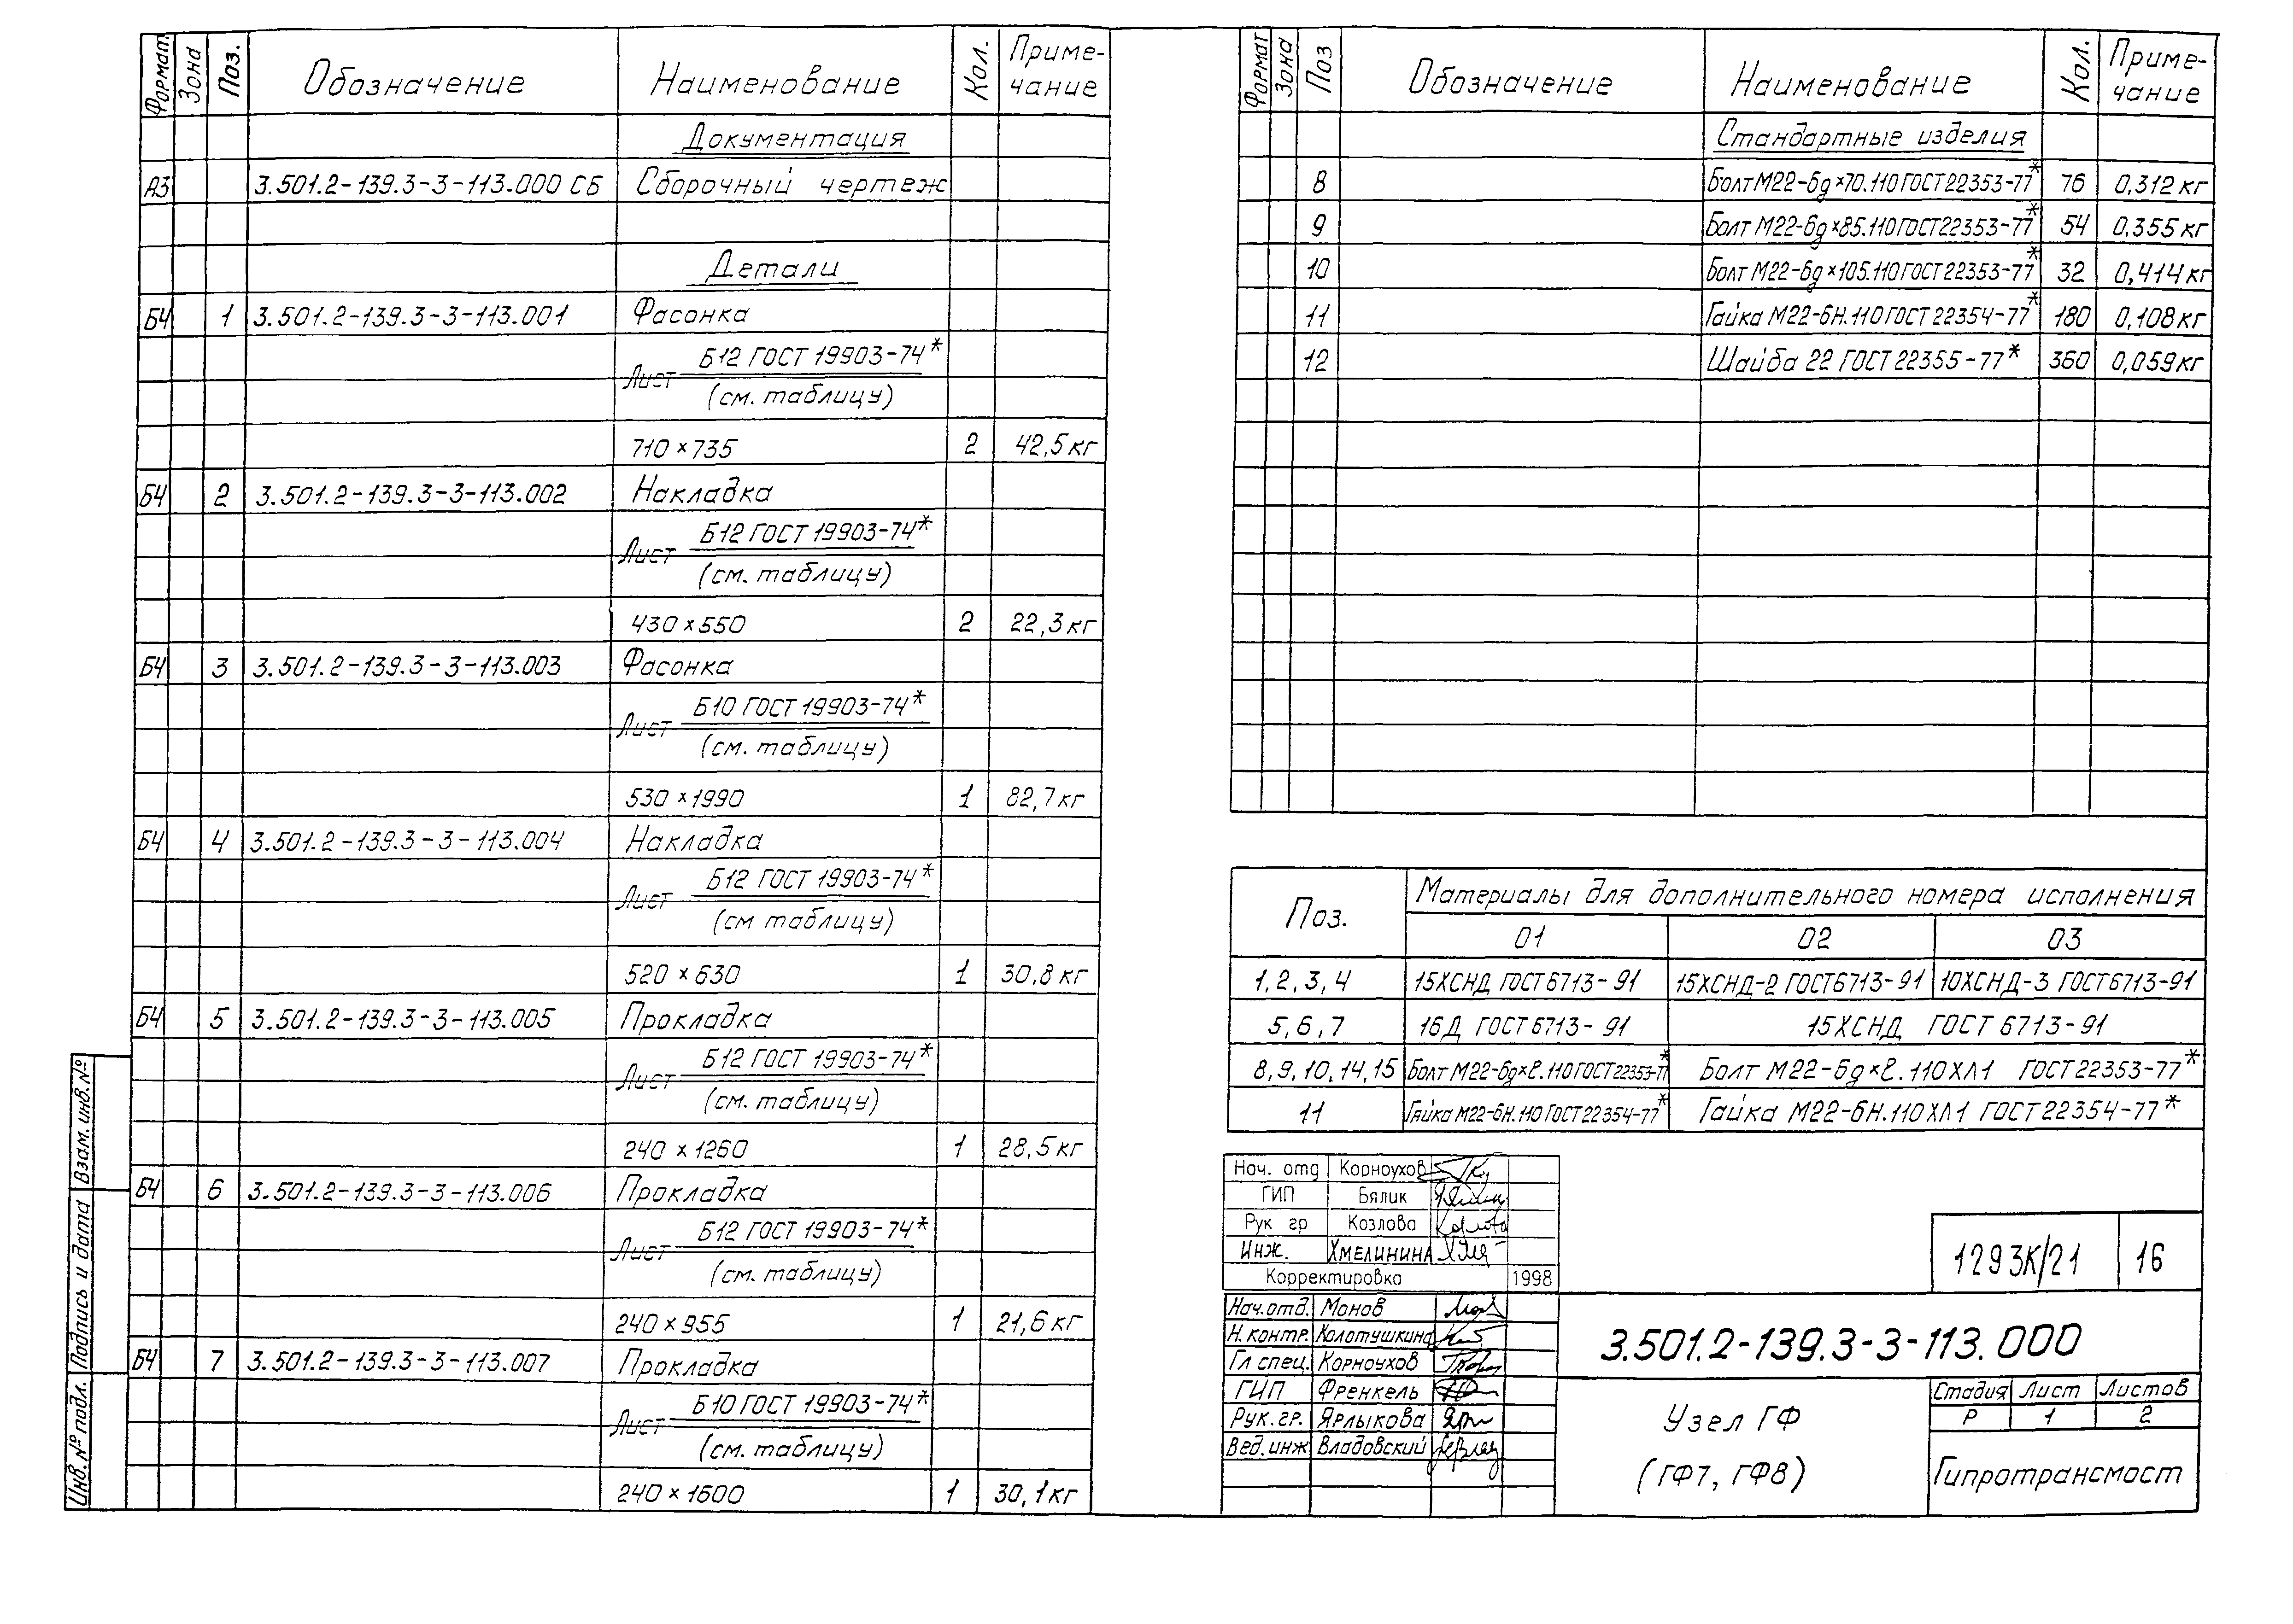 Формат Зона Поз. Обозначение Наименование Кол. Приме-
чание
Документация
А3 3.501.2-139.3-3-113.000 СБ Сборочный чертеж
Детали
Б4 1 3.501.2-139.3-3-113.001 Фасонка
Лист Б12 ГОСТ 19903-74*
(см. таблицу)
710 × 735 2 42,5 кг
Б4 2 3.501.2-139.3-3-113.002 Накладка
Лист Б12 ГОСТ 19903-74*
(см. таблицу)
430 × 550 2 22,3 кг
Б4 3 3.501.2-139.3-3-113.003 Фасонка
Лист Б10 ГОСТ 19903-74*
(см. таблицу)
530 × 1990 1 82,7 кг
Б4 4 3.501.2-139.3-3-113.004 Накладка
Лист Б12 ГОСТ 19903-74*
(см таблицу)
520 × 630 1 30,8 кг
Б4 5 3.501.2-139.3-3-113.005 Прокладка
Лист Б12 ГОСТ 19903-74*
(см. таблицу)
240 × 1260 1 28,5 кг
Б4 6 3.501.2-139.3-3-113.006 Прокладка
Лист Б12 ГОСТ 19903-74*
(см. таблицу)
240 × 955 1 21,6 кг
Б4 7 3.501.2-139.3-3-113.007 Прокладка
Лист Б10 ГОСТ 19903-74*
(см. таблицу)
240 × 1600 1 30,1 кг
Взам. инв. №
Подпись и дата
Инв. № подл.
Формат Зона Поз Обозначение Наименование Кол. Приме-
чание
Стандартные изделия
8 Болт М22-6g×70.110 ГОСТ 22353-77* 76 0,312 кг
9 Болт М22-6g×85.110 ГОСТ 22353-77* 54 0,355 кг
10 Болт М22-6g×105.110 ГОСТ 22353-77* 32 0,414 кг
11 Гайка М22-6Н.110 ГОСТ 22354-77* 180 0,108 кг
12 Шайба 22 ГОСТ 22355-77* 360 0,059 кг
Поз. Материалы для дополнительного номера исполнения
01 02 03
1, 2, 3, 4 15ХСНД ГОСТ 6713-91 15ХСНД-2 ГОСТ 6713-91 10ХСНД-3 ГОСТ 6713-91
5, 6, 7 16Д ГОСТ 6713-91 15ХСНД ГОСТ 6713-91
8, 9, 10, 14, 15 Болт М22-6g×ℓ.110 ГОСТ 22353-77* Болт М22-6g×ℓ.110ХЛ1 ГОСТ 22353-77*
11 Гайка М22-6Н.110 ГОСТ 22354-77* Гайка М22-6Н.110ХЛ1 ГОСТ 22354-77*
Нач. отд Корноухов
ГИП Бялик
Рук гр Козлова
Инж. Хмелинина
Корректировка 1998
1293К/21 16
Нач. отд. Монов
Н. контр. Колотушкина
Гл спец. Корноухов
ГИП Френкель
Рук. гр. Ярлыкова
Вед. инж Владовский
3.501.2-139.3-3-113.000
Узел ГФ
(ГФ7, ГФ8)
Стадия Лист Листов
Р 1 2
Гипротрансмост